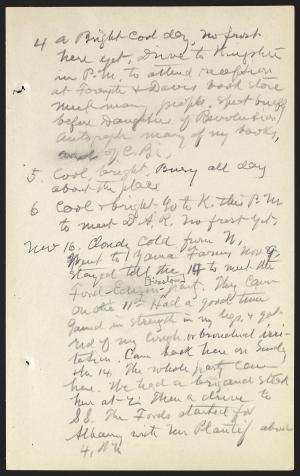 4 a Bright Cool day, no frost
here yet, Drive to Kingston
in P.M. to attend reception
at Forsyth & Davis book store
Meet many people. Speak briefly
before Daughters of Revolution,
autograph many of my books,
of C. B.
5. Cool, bright, Busy all day
about the place
6 Cool & bright. Go to K. this P.M.
to meet D.A.R. No frost yet,
Nov 16. Cloudy Cold, from N,
Went to Yama Farms Nov 9,
Stayed till the 14 to meet the
Ford-Edison Firestone part. They Came
on the 11th Had a good time
Gained in strength in my legs, & got
rid of my Cough, or bronchial irri-
tation. Came back here on Sunday
the 14. The whole party came
here. We had a brigand steak
here at 2. Then a drive to
S.S. The Fords started for
Albany with Mr Plantiff about
4, P.M